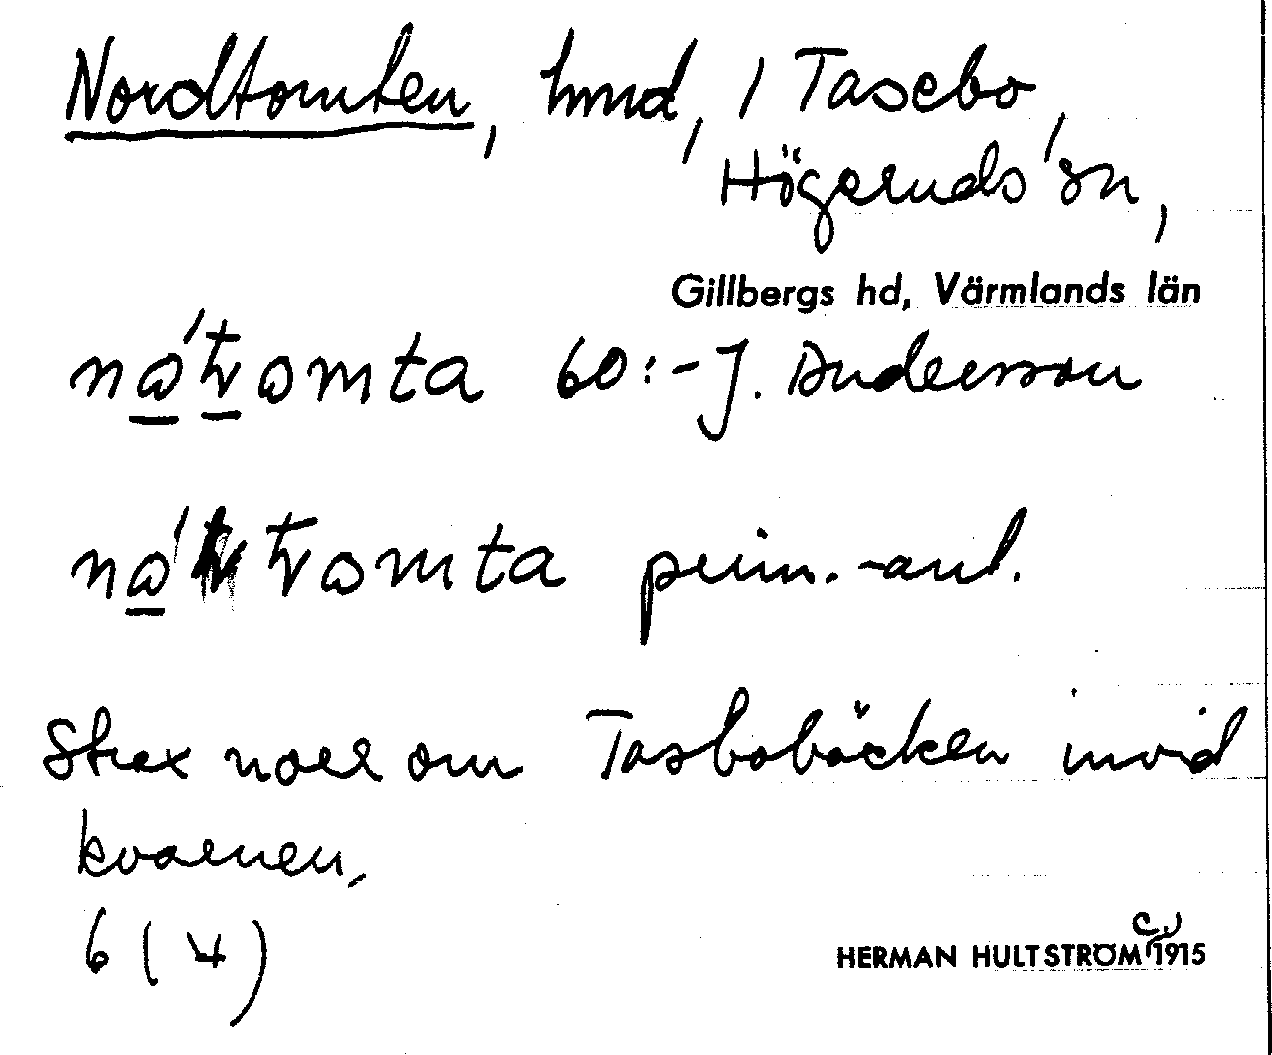 Nordtomten, hmd, i Tasebo,
Högeruds sn,
Gillbergs hd, Värmlands län
60:- J. Andersson
prim.-anl.
Strax norr om Tasbobäcken invid
kvarnen.
6 (4)
HERMAN HULTSTRÖM C. 1915